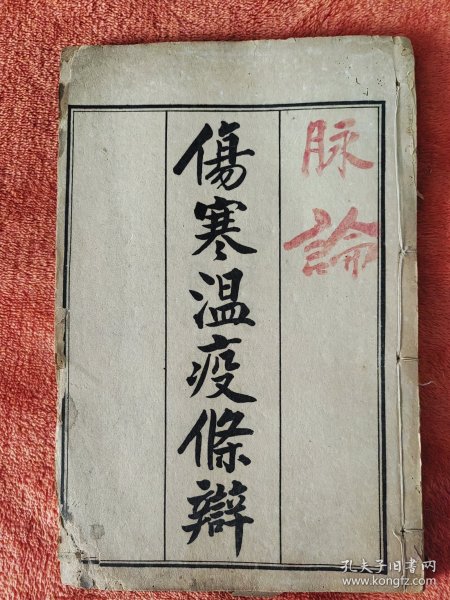 脉論
傷寒温疫條辯
孔夫子旧书网
www.kongfz.com